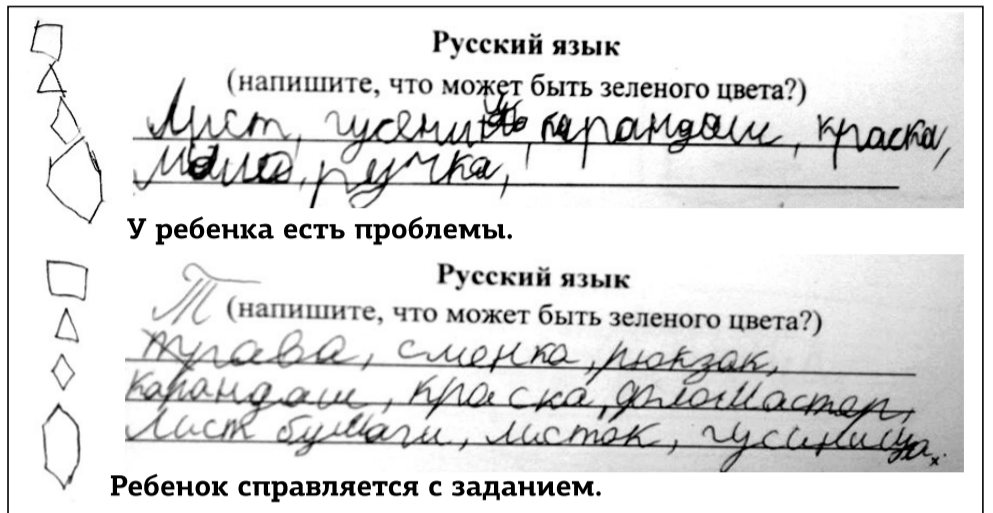 Русский язык
(напишите, что может быть зеленого цвета?)
Лист, гусеница, карандаш, краска,
ручка,
У ребенка есть проблемы.
Русский язык
Т (напишите, что может быть зеленого цвета?)
трава, сменка, рюкзак,
карандаш, краска, фломастер,
Лист бумаги, листок, гусиница.
Ребенок справляется с заданием.